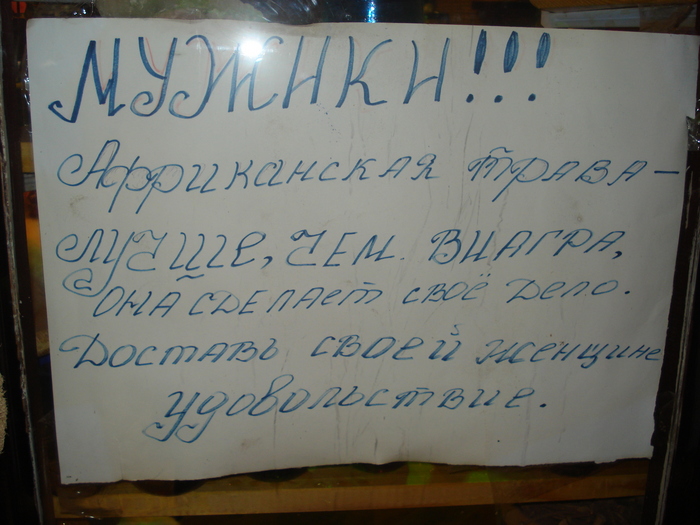 МУЖИКИ!!!
Африканская трава –
ЛУЧШЕ, ЧЕМ ВИАГРА,
ОНА СДЕЛАЕТ СВОЁ ДЕЛО.
ДОСТАВЬ СВОЕЙ ЖЕНЩИНЕ
УДОВОЛЬСТВИЕ.